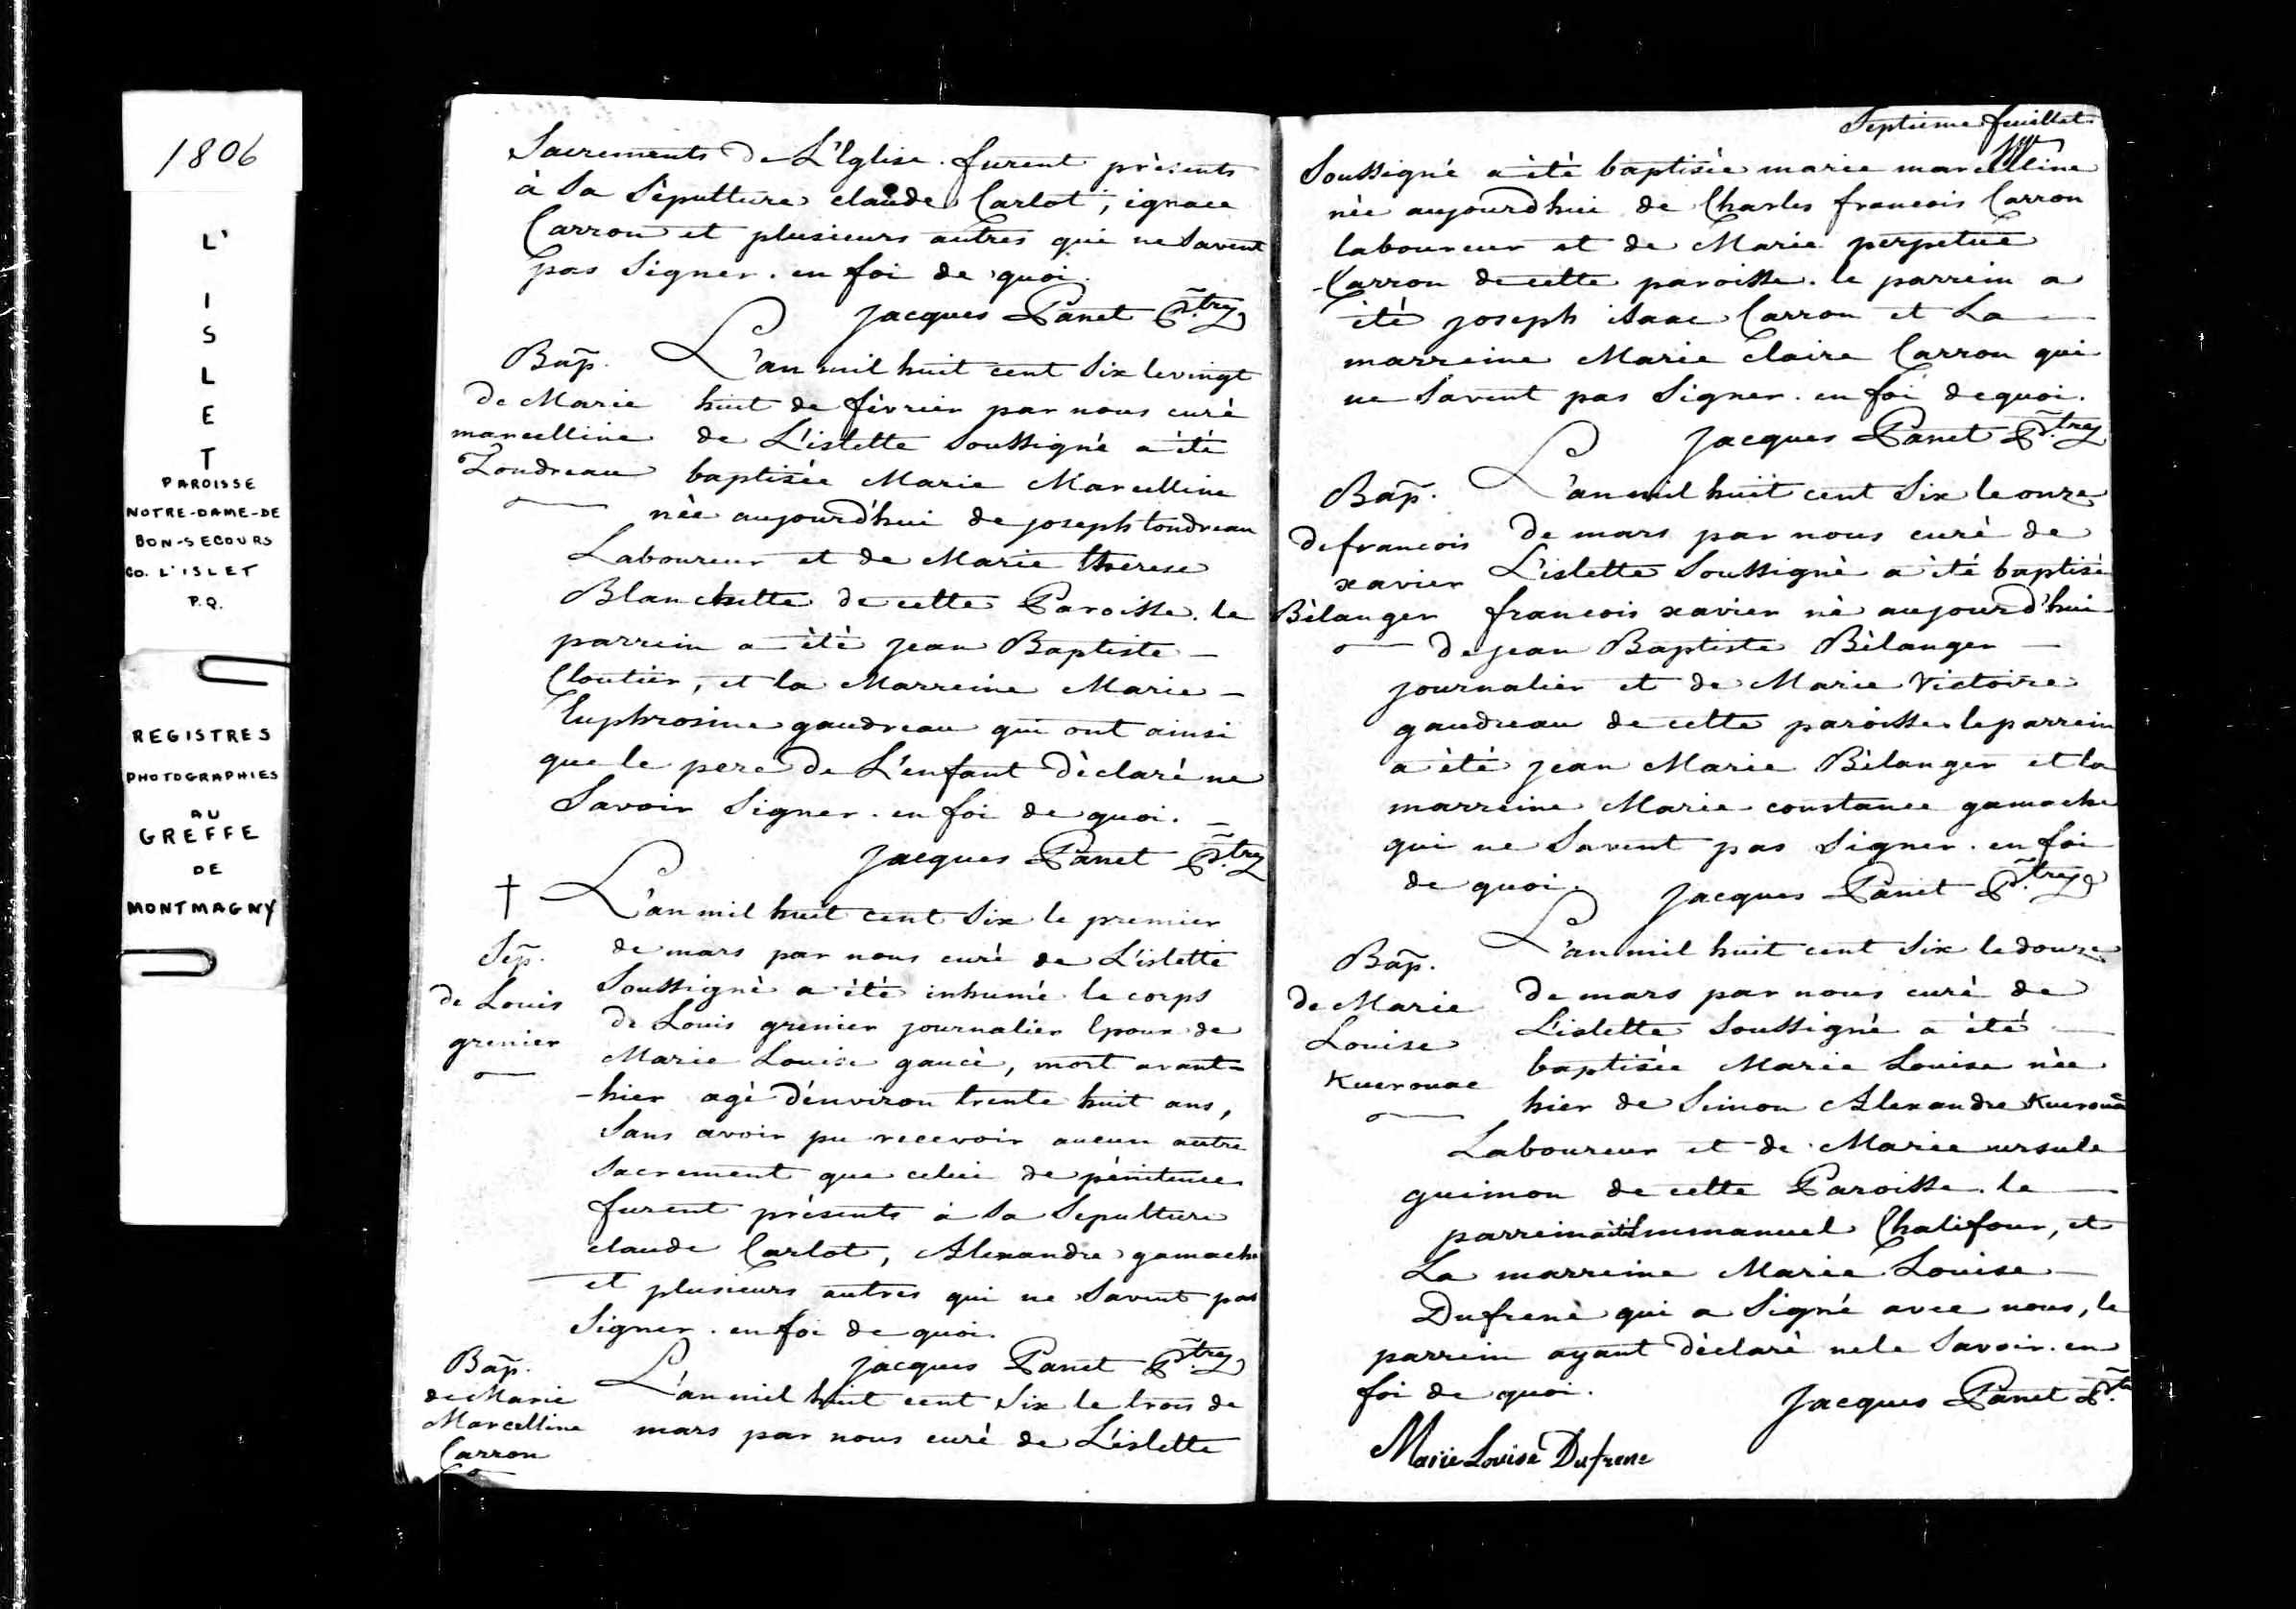 1806
L'
I
S
L
E
T
PAROISSE
NOTRE-DAME-DE
BON-SECOURS
CO. L'ISLET
P.Q.
REGISTRES
PHOTOGRAPHIES
AU
GREFFE
DE
MONTMAGNY
Sacrements de L'Eglise. furent présents
à Sa Sèpulture claude Carlot, ignace
Carron et plusieurs autres qui ne Savent
pas Signer. en foi de quoi.
Jacques Panet Ptre
Bap.
de Marie
marcelline
Tondreau
L'an mil huit cent Six le vingt
huit de fèvrier par nous curè
de L'islette Soussignè a ètè
baptisèe Marie Marcelline
nèe aujourd'hui de joseph tondreau
Laboureur et de Marie therese
Blanchette de cette Paroisse. le
parrein a ètè jean Baptiste
Cloutier, et la Marreine Marie
Euphrosine gaudreau qui ont ainsi
que le pere de L'enfant dèclarè ne
Savoir Signer. en foi de quoi.
Jacques Panet Ptre
†
Sep.
de Louis
grenier
L'an mil huit cent Six le premier
de mars par nous curè de L'islette
Soussignè a ètè inhumè le corps
de Louis grenier journalier Epoux de
Marie Louise gaucè, mort avant=
-hier agè d'environ trente huit ans,
Sans avoir pu recevoir aucun autre
Sacrement que celui de pènitence
furent prèsents à Sa Sepulture
claude Carlot, Alexandre gamache
et plusieurs autres qui ne Savent pas
Signer. en foi de quoi.
Jacques Panet Ptre
Bap.
de Marie
Marcelline
Carron
L'an mil huit cent Six le trois de
mars par nous curè de L'islette
Septieme feuillet
Soussigné a ètè baptisèe marie marcelline
nèe aujourdhui de Charles francois Carron
laboureur et de Marie perpetue
Carron de cette paroisse. le parrein a
ètè joseph isaac Carron et La
marreine Marie Claire Carron qui
ne Savent pas Signer. en foi de quoi.
Jacques Panet Ptre
Bap.
de francois
xavier
Bèlanger
L'an mil huit cent Six le onze
de mars par nous curè de
L'islette Soussignè a ètè baptisè
francois xavier nè aujourd'hui
de jean Baptiste Bèlanger
journalier et de Marie Victoire
gaudreau de cette paroisse le parrein
a ètè jean Marie Bèlanger et la
marreine Marie constance gamache
qui ne Savent pas Signer. en foi
de quoi.
Jacques Panet Ptre
Bap.
de Marie
Louise
Kuerouac
L'an mil huit cent Six le douze
de mars par nous curè de
L'islette Soussignè a ètè
baptisèe Marie Louise nèe
hier de Simon Alexandre Kuerouac
Laboureur et de Marie ursule
guimon de cette Paroisse. le
parrein a ètè Emmanuel Chalifour, et
La marreine Marie Louise
Dufrene qui a Signè avec nous, le
parrein ayant dèclarè ne le Savoir. en
foi de quoi.
Jacques Panet Ptre
Marie Louise Dufrene